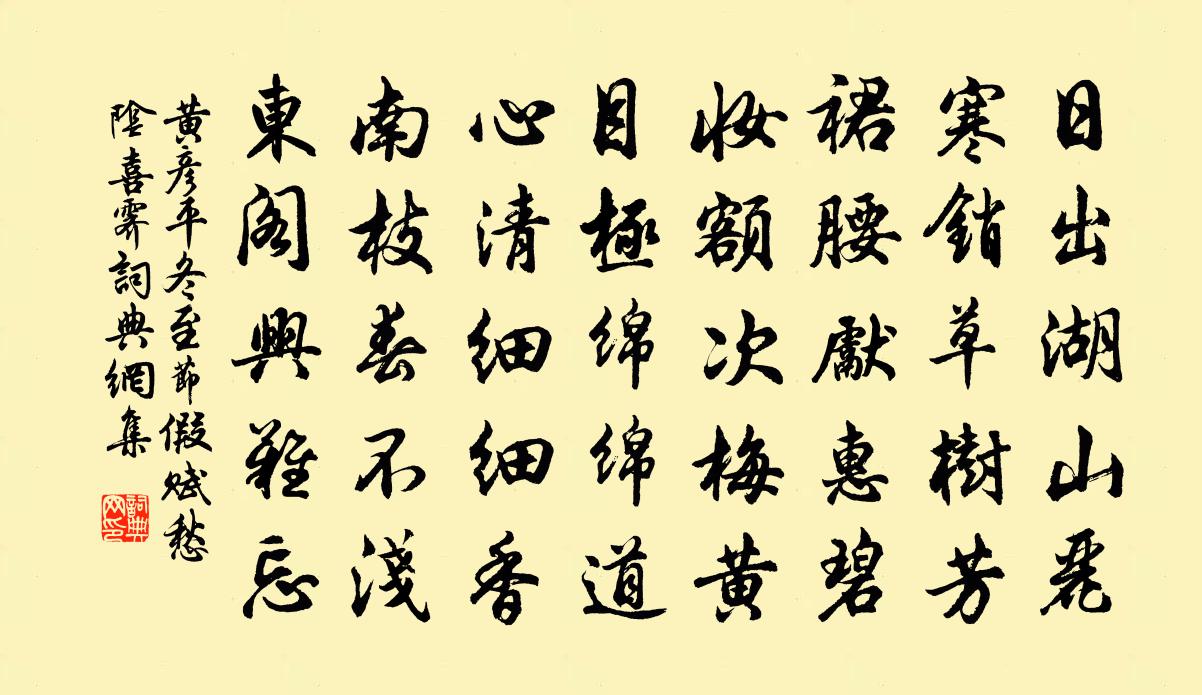 日出湖山麗
寒銷草樹芳
裙腰獻惠碧
妝額次梅黃
目極綿綿道
心清細細香
南枝春不淺
東閣興難忘
黃彥平冬至節假賦愁
陰喜霽詞典網集
詞典网印